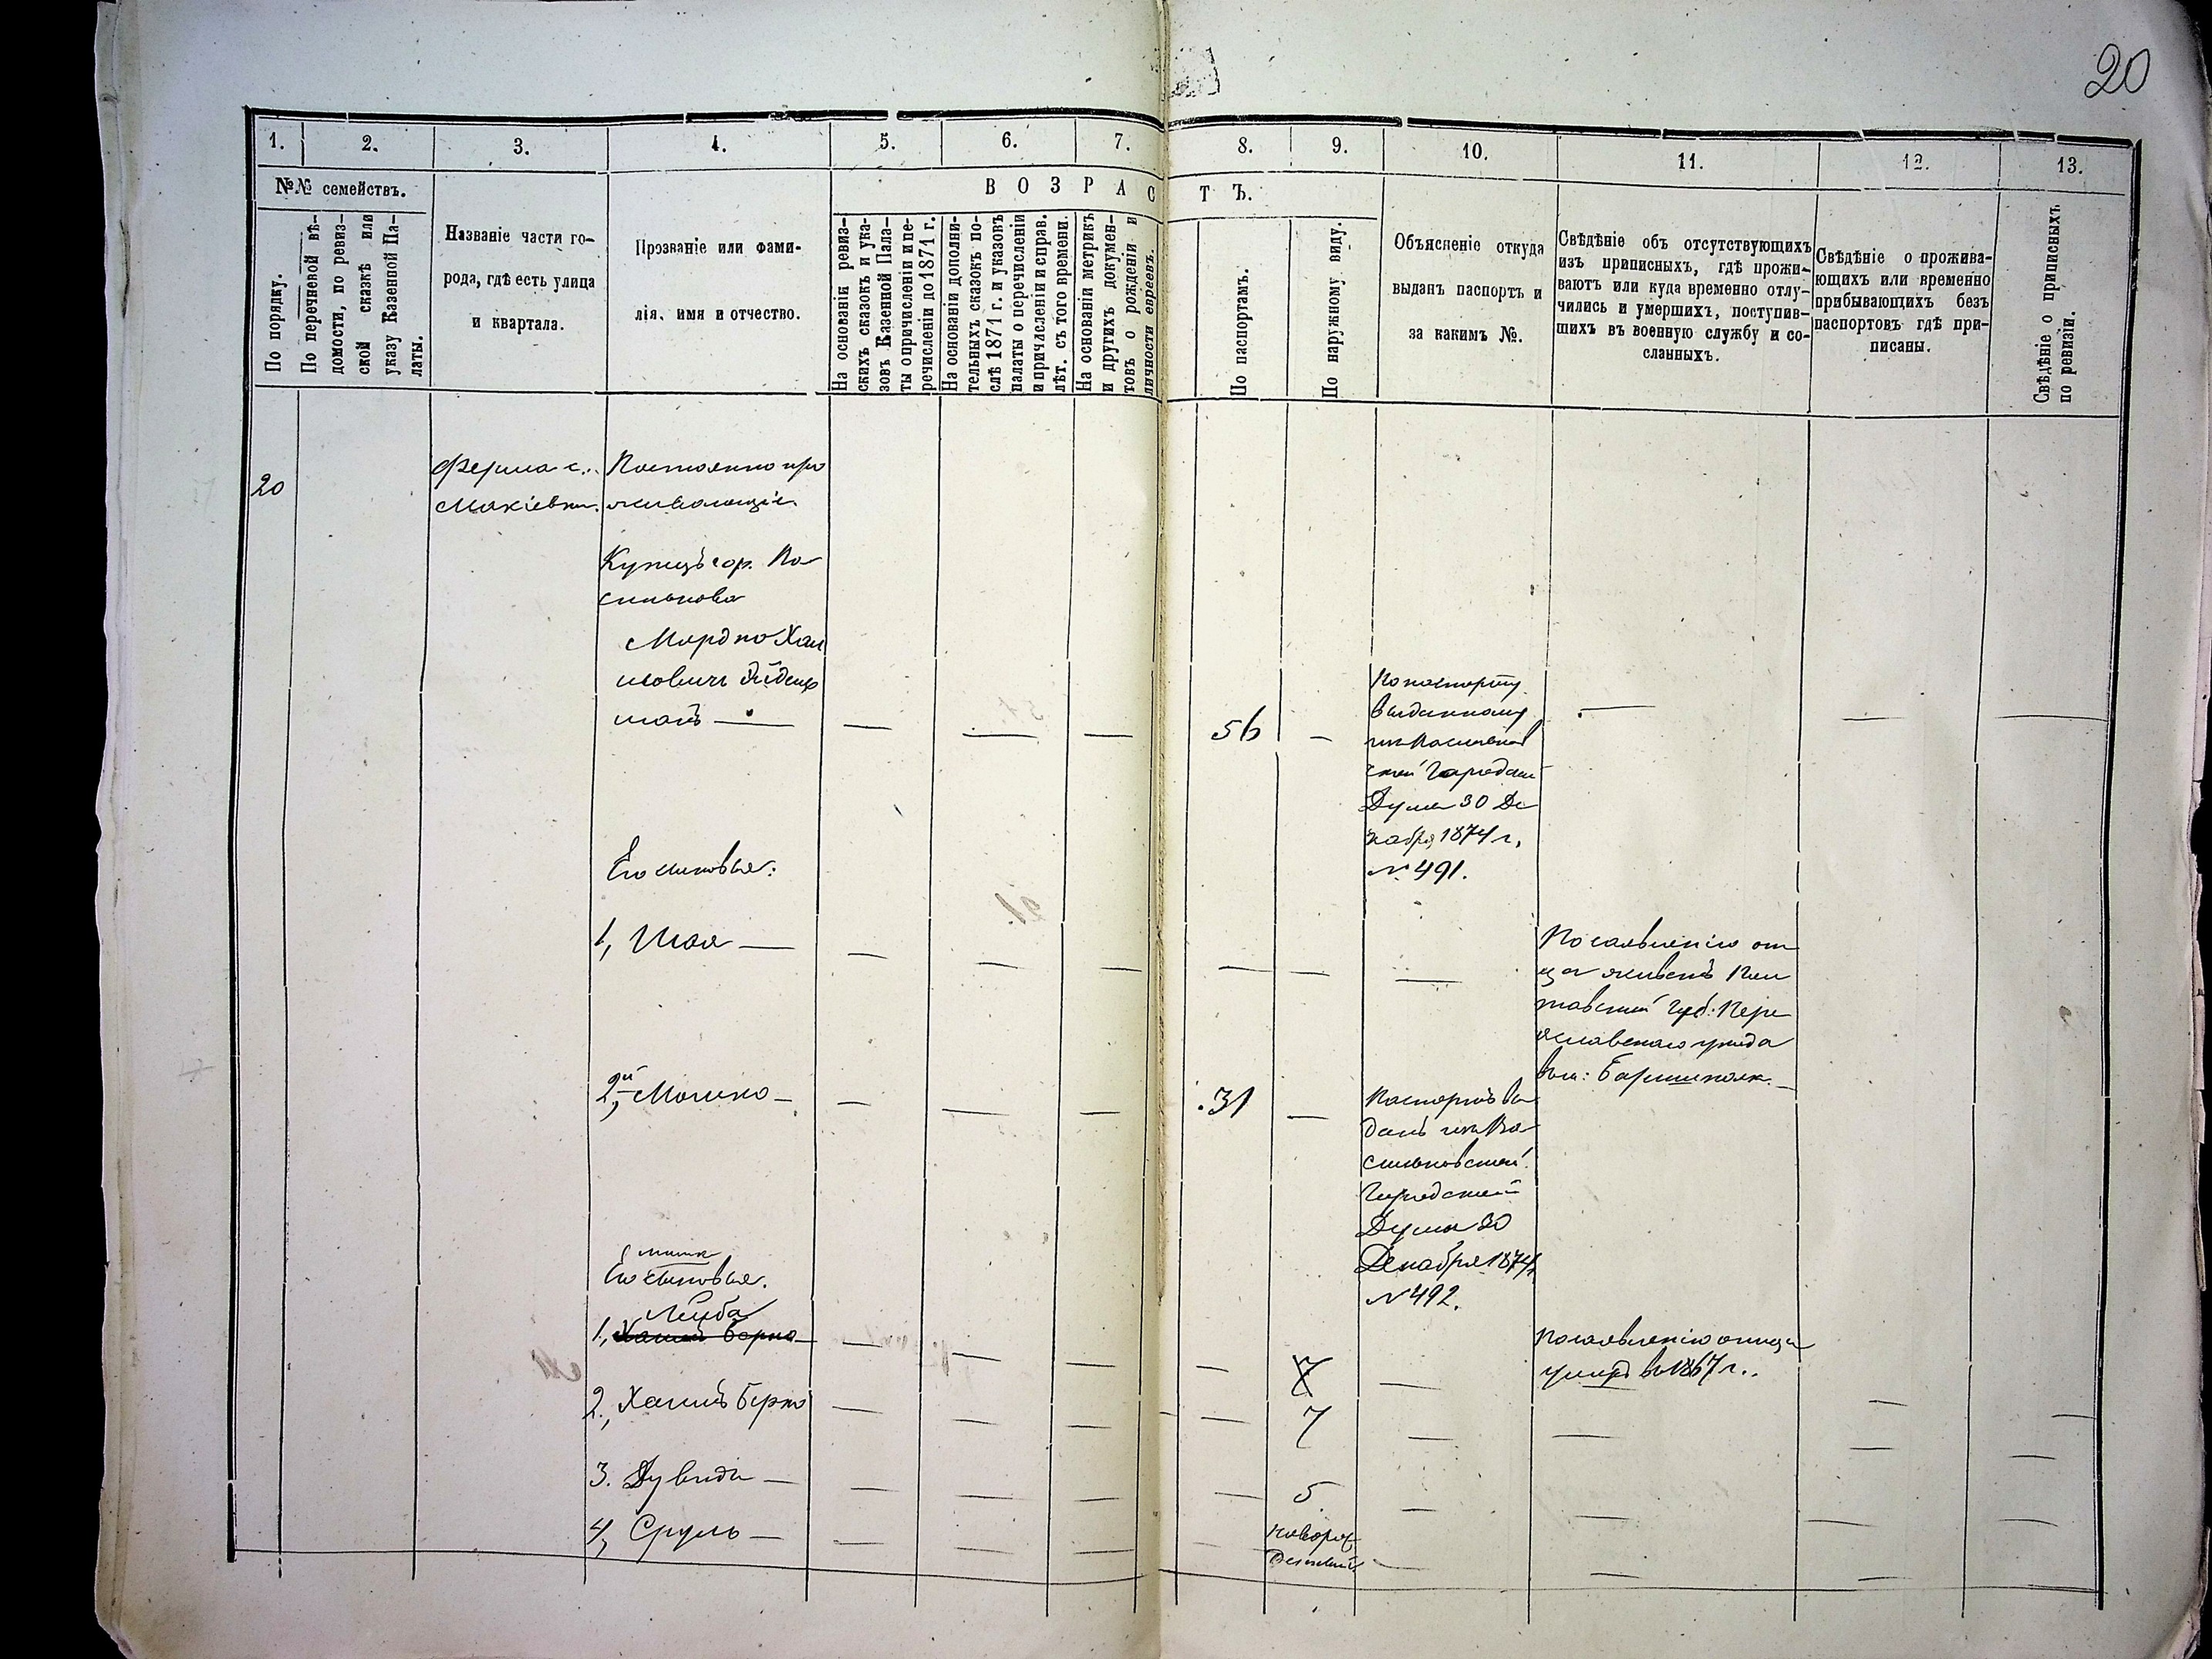 20
1. 2. 3. 4. 5. 6. 7. 8. 9. 10. 11. 12. 13.
№№ семействъ.
В О З Р А С Т Ъ.
По порядку.
По перечневой вѣ-
домости, по ревиз-
ской сказкѣ или
указу Казенной Па-
латы.
Названіе части го-
рода, гдѣ есть улица
и квартала.
Прозваніе или фами-
лія, имя и отчество.
На основаніи ревиз-
скихъ сказокъ и ука-
зовъ Казенной Пала-
ты о причисленіи и пе-
речисленіи до 1871 г.
На основаніи дополни-
тельныхъ сказокъ по-
слѣ 1871 г. и указовъ
палаты о перечисленіи
и причисленіи и справ.
лѣт. съ того времени.
На основаніи метрикъ
и другихъ докумен-
товъ о рожденіи и
личности евреевъ.
По паспортамъ.
По наружному виду.
Объясненіе откуда
выданъ паспортъ и
за какимъ №.
Свѣдѣніе объ отсутствующихъ
изъ приписныхъ, гдѣ прожи-
ваютъ или куда временно отлу-
чились и умершихъ, поступив-
шихъ въ военную службу и со-
сланныхъ.
Свѣдѣніе о прожива-
ющихъ или временно
прибывающихъ безъ
паспортовъ гдѣ при-
писаны.
Свѣдѣніе о приписныхъ
по ревизіи.
20
Ферма с.
Макіевки.
Постоянно про
живающіе
Купецъ гор. Ва
силькова
Мордко Хаи
мовичъ
— 56 —
По паспорту
выданному
изъ Васильков
ской Городской
Думы 30 Де
кабря 1874 г.
№ 491.
Его сыновья:
1, Шая —
По заявленію от
ца живетъ Пол
тавской Губ. Пере
яславскаго уѣзда
2й, Мошко — 31 —
Паспортъ вы
данъ изъ Ва
сильковской
Городской
Думы 30
Декабря 1874 г.
№ 492.
Мошк
Его сыновья.
Лейба
1, Хаимъ Берко — 7
По заявленію отца
умеръ въ 1867 г.
2, Хаимъ Берко — 7
3. Дувидъ — 5
4, Сруль —
новорож
денный